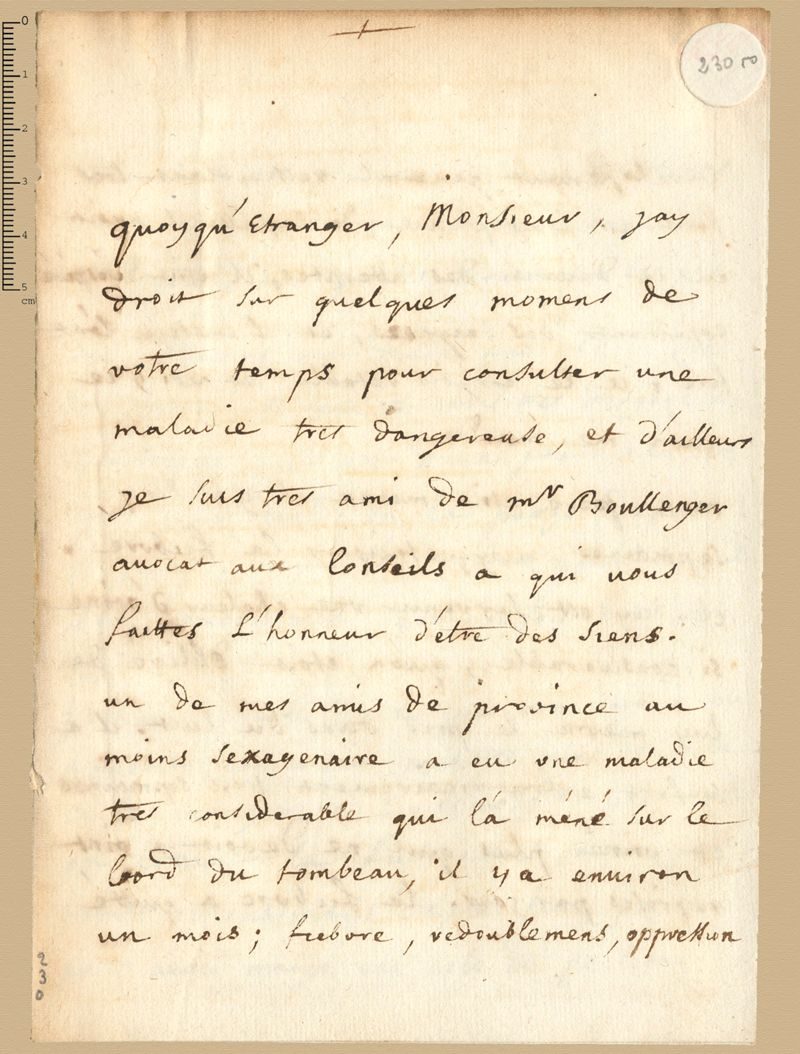 230 ro
quoyqu'Etranger, Monsieur, jay
droit sur quelques momens de
votre temps pour consulter une
maladie tres dangereuse, et d'ailleurs
je suis tres ami de mr Boullenger
avocat aux Conseils a qui vous
faittes L'honneur d'etre des siens.
un de mes amis de province au
moins sexagenaire a eu une maladie
tres considerable qui l'a méné sur le
bord du tombeau, il y a environ
un mois; fiebvre, redoublemens, oppression
230
0
1
2
3
4
5
cm